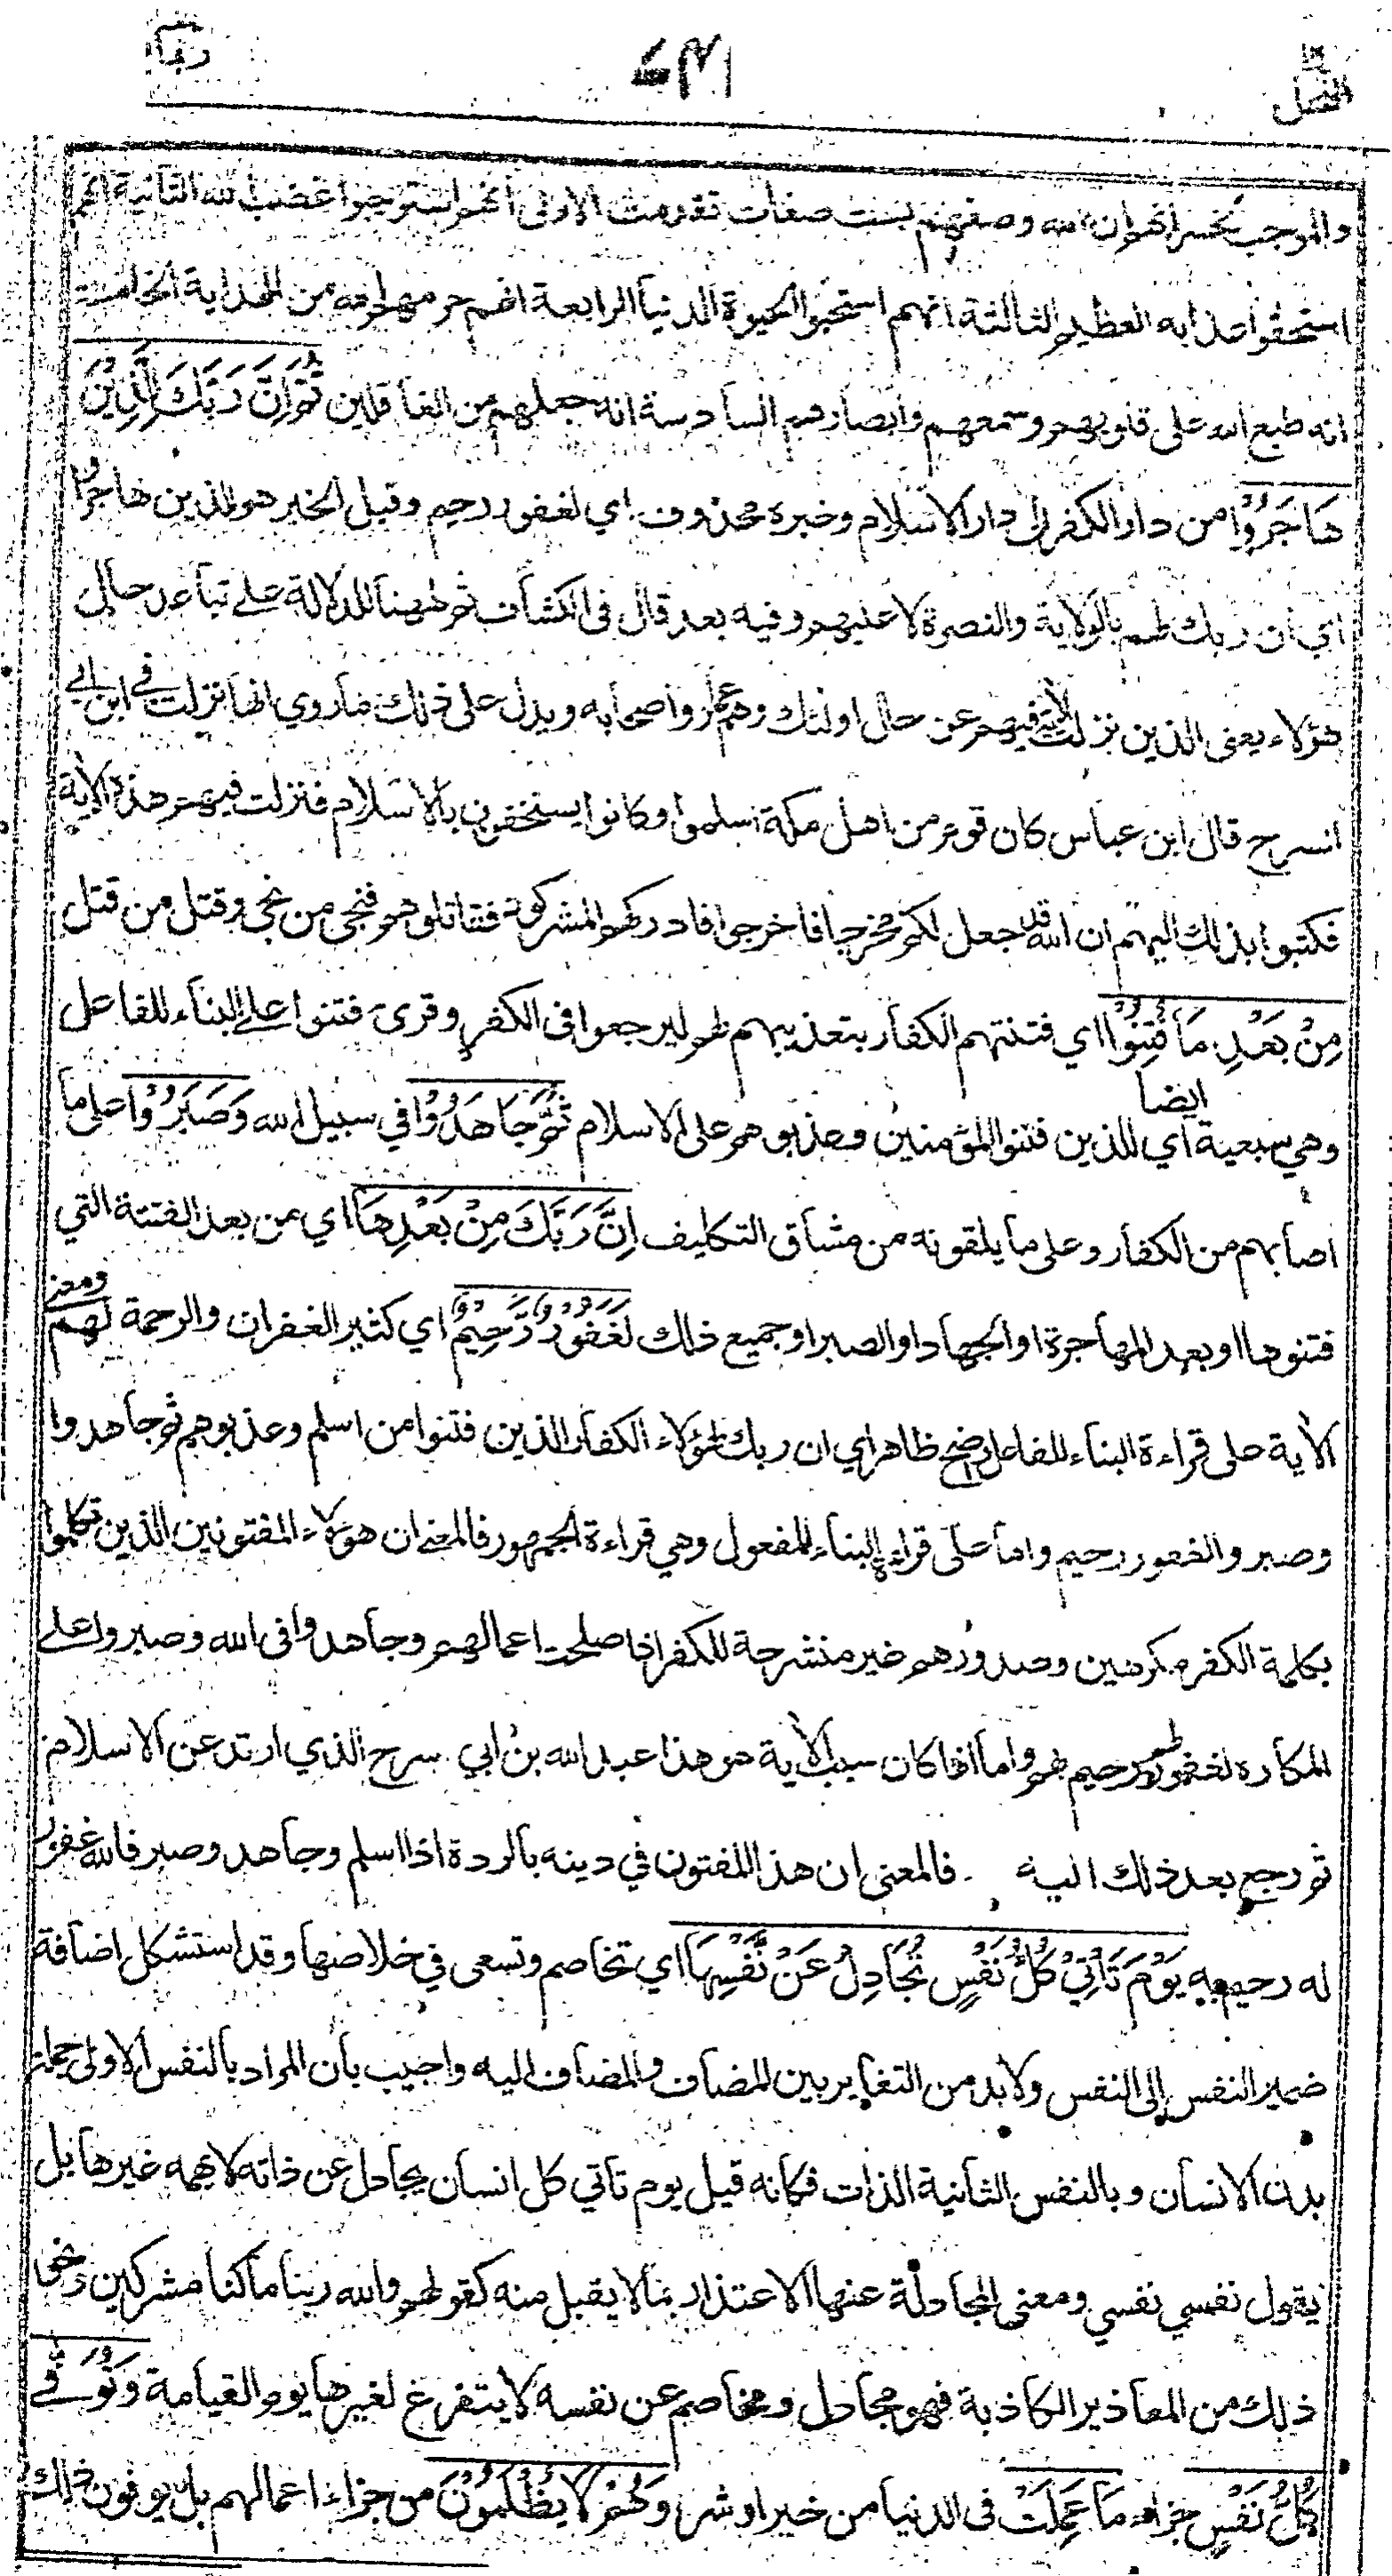 ربما
النحل
والموجب لخسرانهم ان الله وصفهم بست صفات تقدمت الاولى انهم استوجبوا غضب الله الثانية انهم
استحقوا عذابه العظيم الثالثة انهم استحبوا الحيوة الدنيا الرابعة انهم حرمهم الله من الهداية الخامسة
انه طبع الله على قلوبهم وسمعهم وابصارهم السادسة انه جعلهم من الغافلين ثُمَّ اِنَّ رَبَّكَ لِلَّذِيْنَ
هَاجَرُوْا من دار الكفر الى دار الاسلام وخبره محذوف اي لغفور رحيم وقيل الخبر هو للذين هاجروا
اي ان ربك لهم بالولاية والنصرة لا عليهم وفيه بعد قال في الكشاف ثم ههنا للدلالة على تباعد حال
هؤلاء يعني الذين نزلت الآية فيهم عن حال اولئك وهم عمار واصحابه ويدل على ذلك ما روي انها نزلت في ابن ابي
السرح قال ابن عباس كان قوم من اهل مكة اسلموا وكانوا يستخفون بالاسلام فنزلت فيهم هذه الآية
فكتبوا بذلك اليهم ان الله قد جعل لكم مخرجا فاخرجوا فادركهم المشركون فقاتلوهم فنجى من نجى وقتل من قتل
مِنْ بَعْدِ مَا فُتِنُوْا اي فتنتهم الكفار بتعذيبهم لهم ليرجعوا في الكفر وقرئ فتنوا على البناء للفاعل
وهي سبعية ايضا اي للذين فتنوا المؤمنين وعذبوهم على الاسلام ثُمَّ جَاهَدُوْا في سبيل الله وَصَبَرُوْا على ما
اصابهم من الكفار وعلى ما يلقونه من مشاق التكاليف اِنَّ رَبَّكَ مِنْ بَعْدِهَا اي من بعد الفتنة التي
فتنوها او بعد المهاجرة او الجهاد او الصبر او جميع ذلك لَغَفُوْرٌ رَّحِيْمٌ اي كثير الغفران والرحمة لهم ومعنى
الآية على قراءة البناء للفاعل واضح ظاهر اي ان ربك لهؤلاء الكفار الذين فتنوا من اسلم وعذبوهم ثم جاهدوا
وصبروا لغفور رحيم واما على قراءة البناء للمفعول وهي قراءة الجمهور فالمعنى ان هؤلاء المفتونين الذين تكلموا
بكلمة الكفر مكرهين وصدورهم غير منشرحة للكفر اذا صلحت اعمالهم وجاهدوا في الله وصبروا على
المكاره لغفور رحيم لهم واما اذا كان سبب الآية هو هذا عبد الله بن ابي سرح الذي ارتد عن الاسلام
ثم رجع بعد ذلك اليه فالمعنى ان هذا المفتون في دينه بالردة اذا اسلم وجاهد وصبر فالله غفور
له رحيم به يَوْمَ تَأْتِيْ كُلُّ نَفْسٍ تُجَادِلُ عَنْ نَّفْسِهَا اي تخاصم وتسعى في خلاصها وقد استشكل اضافة
ضمير النفس الى النفس ولا بد من التغاير بين المضاف والمضاف اليه واجيب بان المراد بالنفس الاولى جملة
بدن الانسان وبالنفس الثانية الذات فكانه قيل يوم تاتي كل انسان يجادل عن ذاته لا يهمه غيرها بل
يقول نفسي نفسي ومعنى المجادلة عنها الاعتذار بما لا يقبل منه كقولهم والله ربنا ما كنا مشركين ونحو
ذلك من المعاذير الكاذبة فهو مجادل ومخاصم عن نفسه لا يتفرغ لغيرها يوم القيامة وَتُوَفّٰى
كُلُّ نَفْسٍ جزاء مَا عَمِلَتْ في الدنيا من خير او شر وَهُمْ لَا يُظْلَمُوْنَ من جزاء اعمالهم بل يوفون ذلك